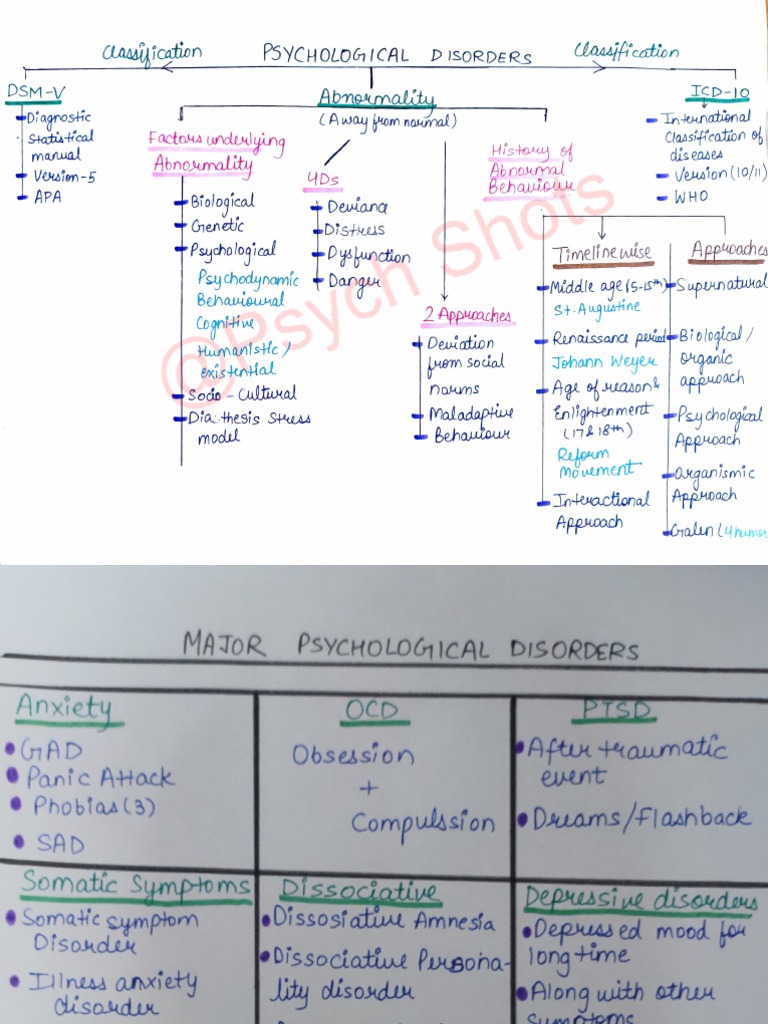 Classification PSYCHOLOGICAL DISORDERS Classification
DSM-V
Diagnostic
Statistical
manual
Version-5
APA
Abnormality
(Away from normal)
ICD-10
International
Classification of
diseases
Version (10/11)
WHO
Factors underlying
Abnormality
Biological
Genetic
Psychological
Psychodynamic
Behavioural
Cognitive
Humanistic/
existential
Socio-Cultural
Diathesis Stress
model
4Ds
Deviance
Distress
Dysfunction
Danger
2 Approaches
Deviation
from social
norms
Maladaptive
Behaviour
History of
Abnormal
Behaviour
Timelinewise
Middle age (5-15th)
St. Augustine
Renaissance period
Johann Weyer
Age of reason &
Enlightenment
(17 & 18th)
Reform
Movement
Interactional
Approach
Approaches
Supernatural
Biological/
organic
approach
Psychological
Approach
Organismic
Approach
Galen (4 humor
@Psych Shots
MAJOR PSYCHOLOGICAL DISORDERS
Anxiety
GAD
Panic Attack
Phobias (3)
SAD
OCD
Obsession
+
Compulssion
PTSD
After traumatic
event
Dreams/flashback
Somatic Symptoms
Somatic symptom
Disorder
Illness anxiety
disorder
Dissociative
Dissosiative Amnesia
Dissociative Persona-
lity disorder
Depressive disorders
Depressed mood for
long time
Along with other
symptoms